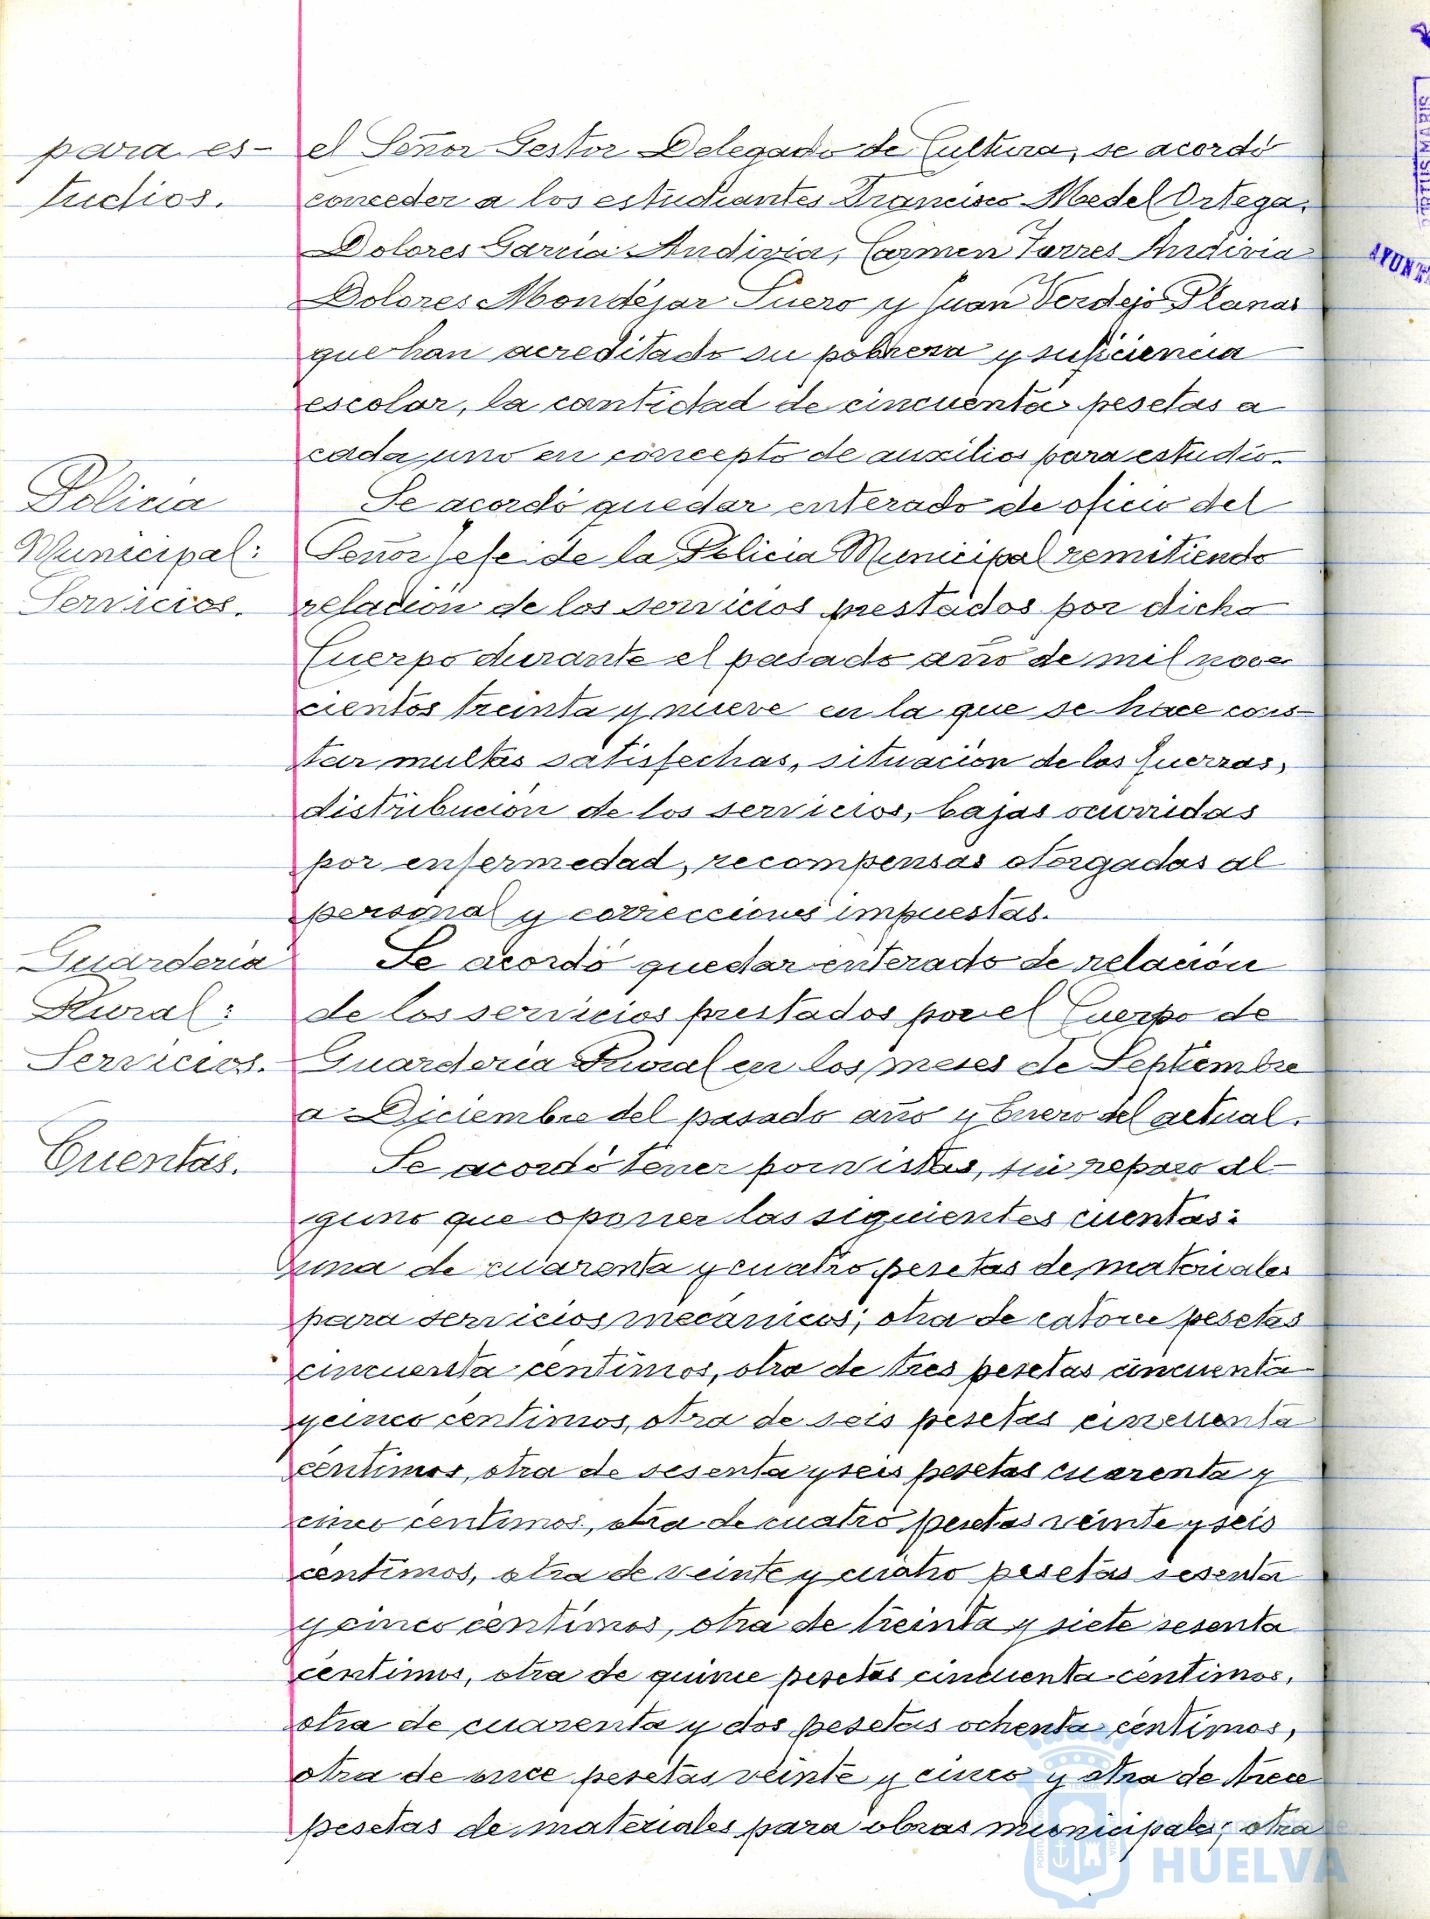 para es-
tudios.
el Señor Gestor Delegado de Cultura, se acordó
conceder a los estudiantes Francisco Medel Ortega,
Dolores García Andivia, Carmen Torres Andivia
Dolores Mondéjar Suero y Juan Verdejo Planas
que han acreditado su pobreza y suficiencia
escolar, la cantidad de cincuenta pesetas a
cada uno en concepto de auxilios para estudio.
Policia
Municipal:
Servicios.
Se acordó quedar enterado de oficio del
Señor Jefe de la Policia Municipal remitiendo
relación de los servicios prestados por dicho
Cuerpo durante el pasado año de mil nove
cientos treinta y nueve en la que se hace cons-
tar multas satisfechas, situación de las fuerzas,
distribución de los servicios, bajas ocurridas
por enfermedad, recompensas otorgadas al
personal y correcciones impuestas.
Guardería
Rural:
Servicios.
Se acordó quedar enterado de relación
de los servicios prestados por el Cuerpo de
Guardería Rural en los meses de Septiembre
a Diciembre del pasado año y Enero del actual.
Cuentas.
Se acordó tener por vistas, sin reparo al-
guno que oponer las siguientes cuentas:
una de cuarenta y cuatro pesetas de materiales
para servicios mecánicos; otra de catorce pesetas
cincuenta centimos, otra de tres pesetas cincuenta
y cinco céntimos, otra de seis pesetas cincuenta
céntimos, otra de sesenta y seis pesetas cuarenta y
cinco céntimos, otra de cuatro pesetas veinte y seis
centimos, otra de veinte y cuatro pesetas sesenta
y cinco centimos, otra de treinta y siete sesenta
centimos, otra de quince pesetas cincuenta centimos,
otra de cuarenta y dos pesetas ochenta céntimos,
otra de once pesetas veinte y cinco y otra de trece
pesetas de materiales para obras municipales; otra
PORTUS MARIS
AYUNT
Ayuntamiento de
HUELVA